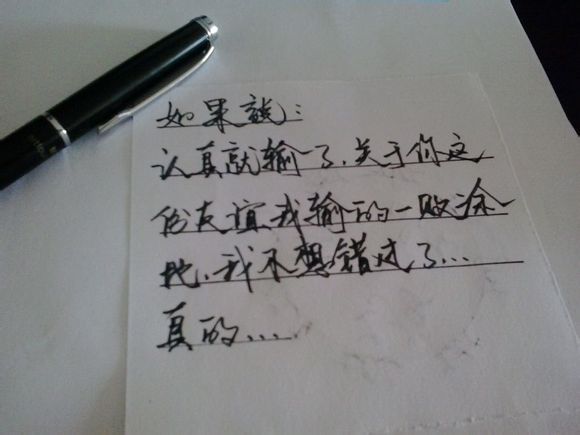 如果说:
认真就输了.关于你这
份友谊我输的一败涂
地.我不想错过了...
真的....